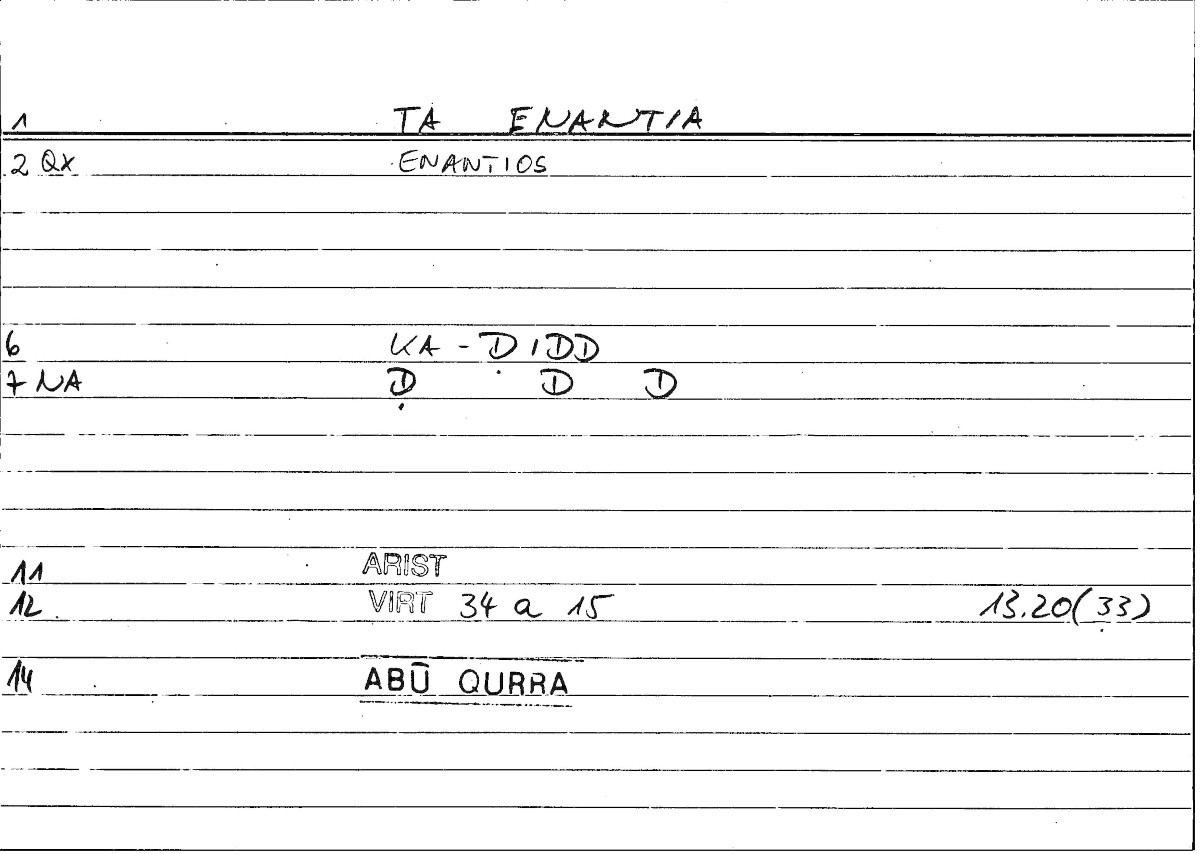 1 TA ENANTIA
2 QX ENANTIOS
6 KA - ḌIDD
7 NA Ḍ D D
11 ARIST
12 VIRT 34 a 15 13.20(33)
14 ABŪ QURRA